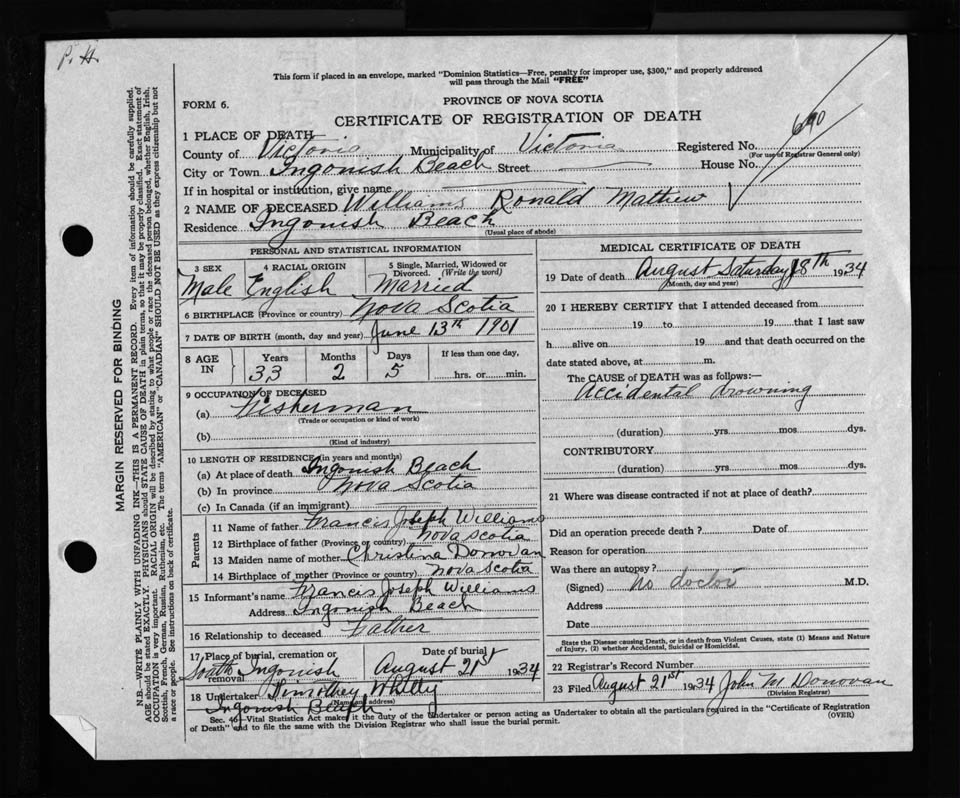 P. H.
This form if placed in an envelope, marked "Dominion Statistics—Free, penalty for improper use, $300," and properly addressed
will pass through the Mail "FREE"
FORM 6.
PROVINCE OF NOVA SCOTIA
CERTIFICATE OF REGISTRATION OF DEATH
640
1 PLACE OF DEATH
County of Victoria Municipality of Victoria Registered No.
(For use of Registrar General only)
City or Town Ingonish Beach Street House No.
If in hospital or institution, give name
2 NAME OF DECEASED Williams Ronald Mathew
Residence Ingonish Beach
(Usual place of abode)
PERSONAL AND STATISTICAL INFORMATION
3 SEX 4 RACIAL ORIGIN 5 Single, Married, Widowed or
Divorced. (Write the word)
Male English Married
6 BIRTHPLACE (Province or country) Nova Scotia
7 DATE OF BIRTH (month, day and year) June 13th 1901
8 AGE IN Years Months Days If less than one day,
33 2 5 hrs. or min.
9 OCCUPATION OF DECEASED
(a) Fisherman
(Trade or occupation or kind of work)
(b)
(Kind of industry)
10 LENGTH OF RESIDENCE (in years and months)
(a) At place of death Ingonish Beach
(b) In province Nova Scotia
(c) In Canada (if an immigrant)
Parents
11 Name of father Francis Joseph Williams
12 Birthplace of father (Province or country) Nova Scotia
13 Maiden name of mother Christina Donovan
14 Birthplace of mother (Province or country) Nova Scotia
15 Informant's name Francis Joseph Williams
Address Ingonish Beach
16 Relationship to deceased Father
17 Place of burial, cremation or removal Date of burial
South Ingonish August 21st 1934
18 Undertaker Timothey Whitty
(Name and address)
Ingonish Beach
MEDICAL CERTIFICATE OF DEATH
19 Date of death August Saturday 18th 1934
(Month, day and year)
20 I HEREBY CERTIFY that I attended deceased from
19 to 19 that I last saw
h alive on 19 and that death occurred on the
date stated above, at m.
The CAUSE of DEATH was as follows:—
Accidental drowning
(duration) yrs. mos. dys.
CONTRIBUTORY
(duration) yrs. mos. dys.
21 Where was disease contracted if not at place of death?
Did an operation precede death? Date of
Reason for operation
Was there an autopsy?
(Signed) no doctor M.D.
Address
Date
State the Disease causing Death, or in death from Violent Causes, state (1) Means and Nature
of Injury, (2) whether Accidental, Suicidal or Homicidal.
22 Registrar's Record Number
23 Filed August 21st 1934 John M Donovan
(Division Registrar)
Sec. 46—Vital Statistics Act make it the duty of the Undertaker or person acting as Undertaker to obtain all the particulars required in the "Certificate of Registration
of Death" and to file the same with the Division Registrar who shall issue the burial permit. (OVER)
MARGIN RESERVED FOR BINDING
N.B.—WRITE PLAINLY WITH UNFADING INK—THIS IS A PERMANENT RECORD. Every item of information should be carefully supplied.
AGE should be stated EXACTLY. PHYSICIANS should STATE CAUSE OF DEATH in plain terms, so that it may be properly classified. Exact statement of
OCCUPATION is very important. RACIAL ORIGIN will be described by stating to what people or race the deceased person belonged, whether English, Irish,
Scottish, French, German, Russian, Ruthenian, etc. The terms "AMERICAN" or "CANADIAN" SHOULD NOT BE USED as they express citizenship but not
a race or people. See instructions on back of certificate.